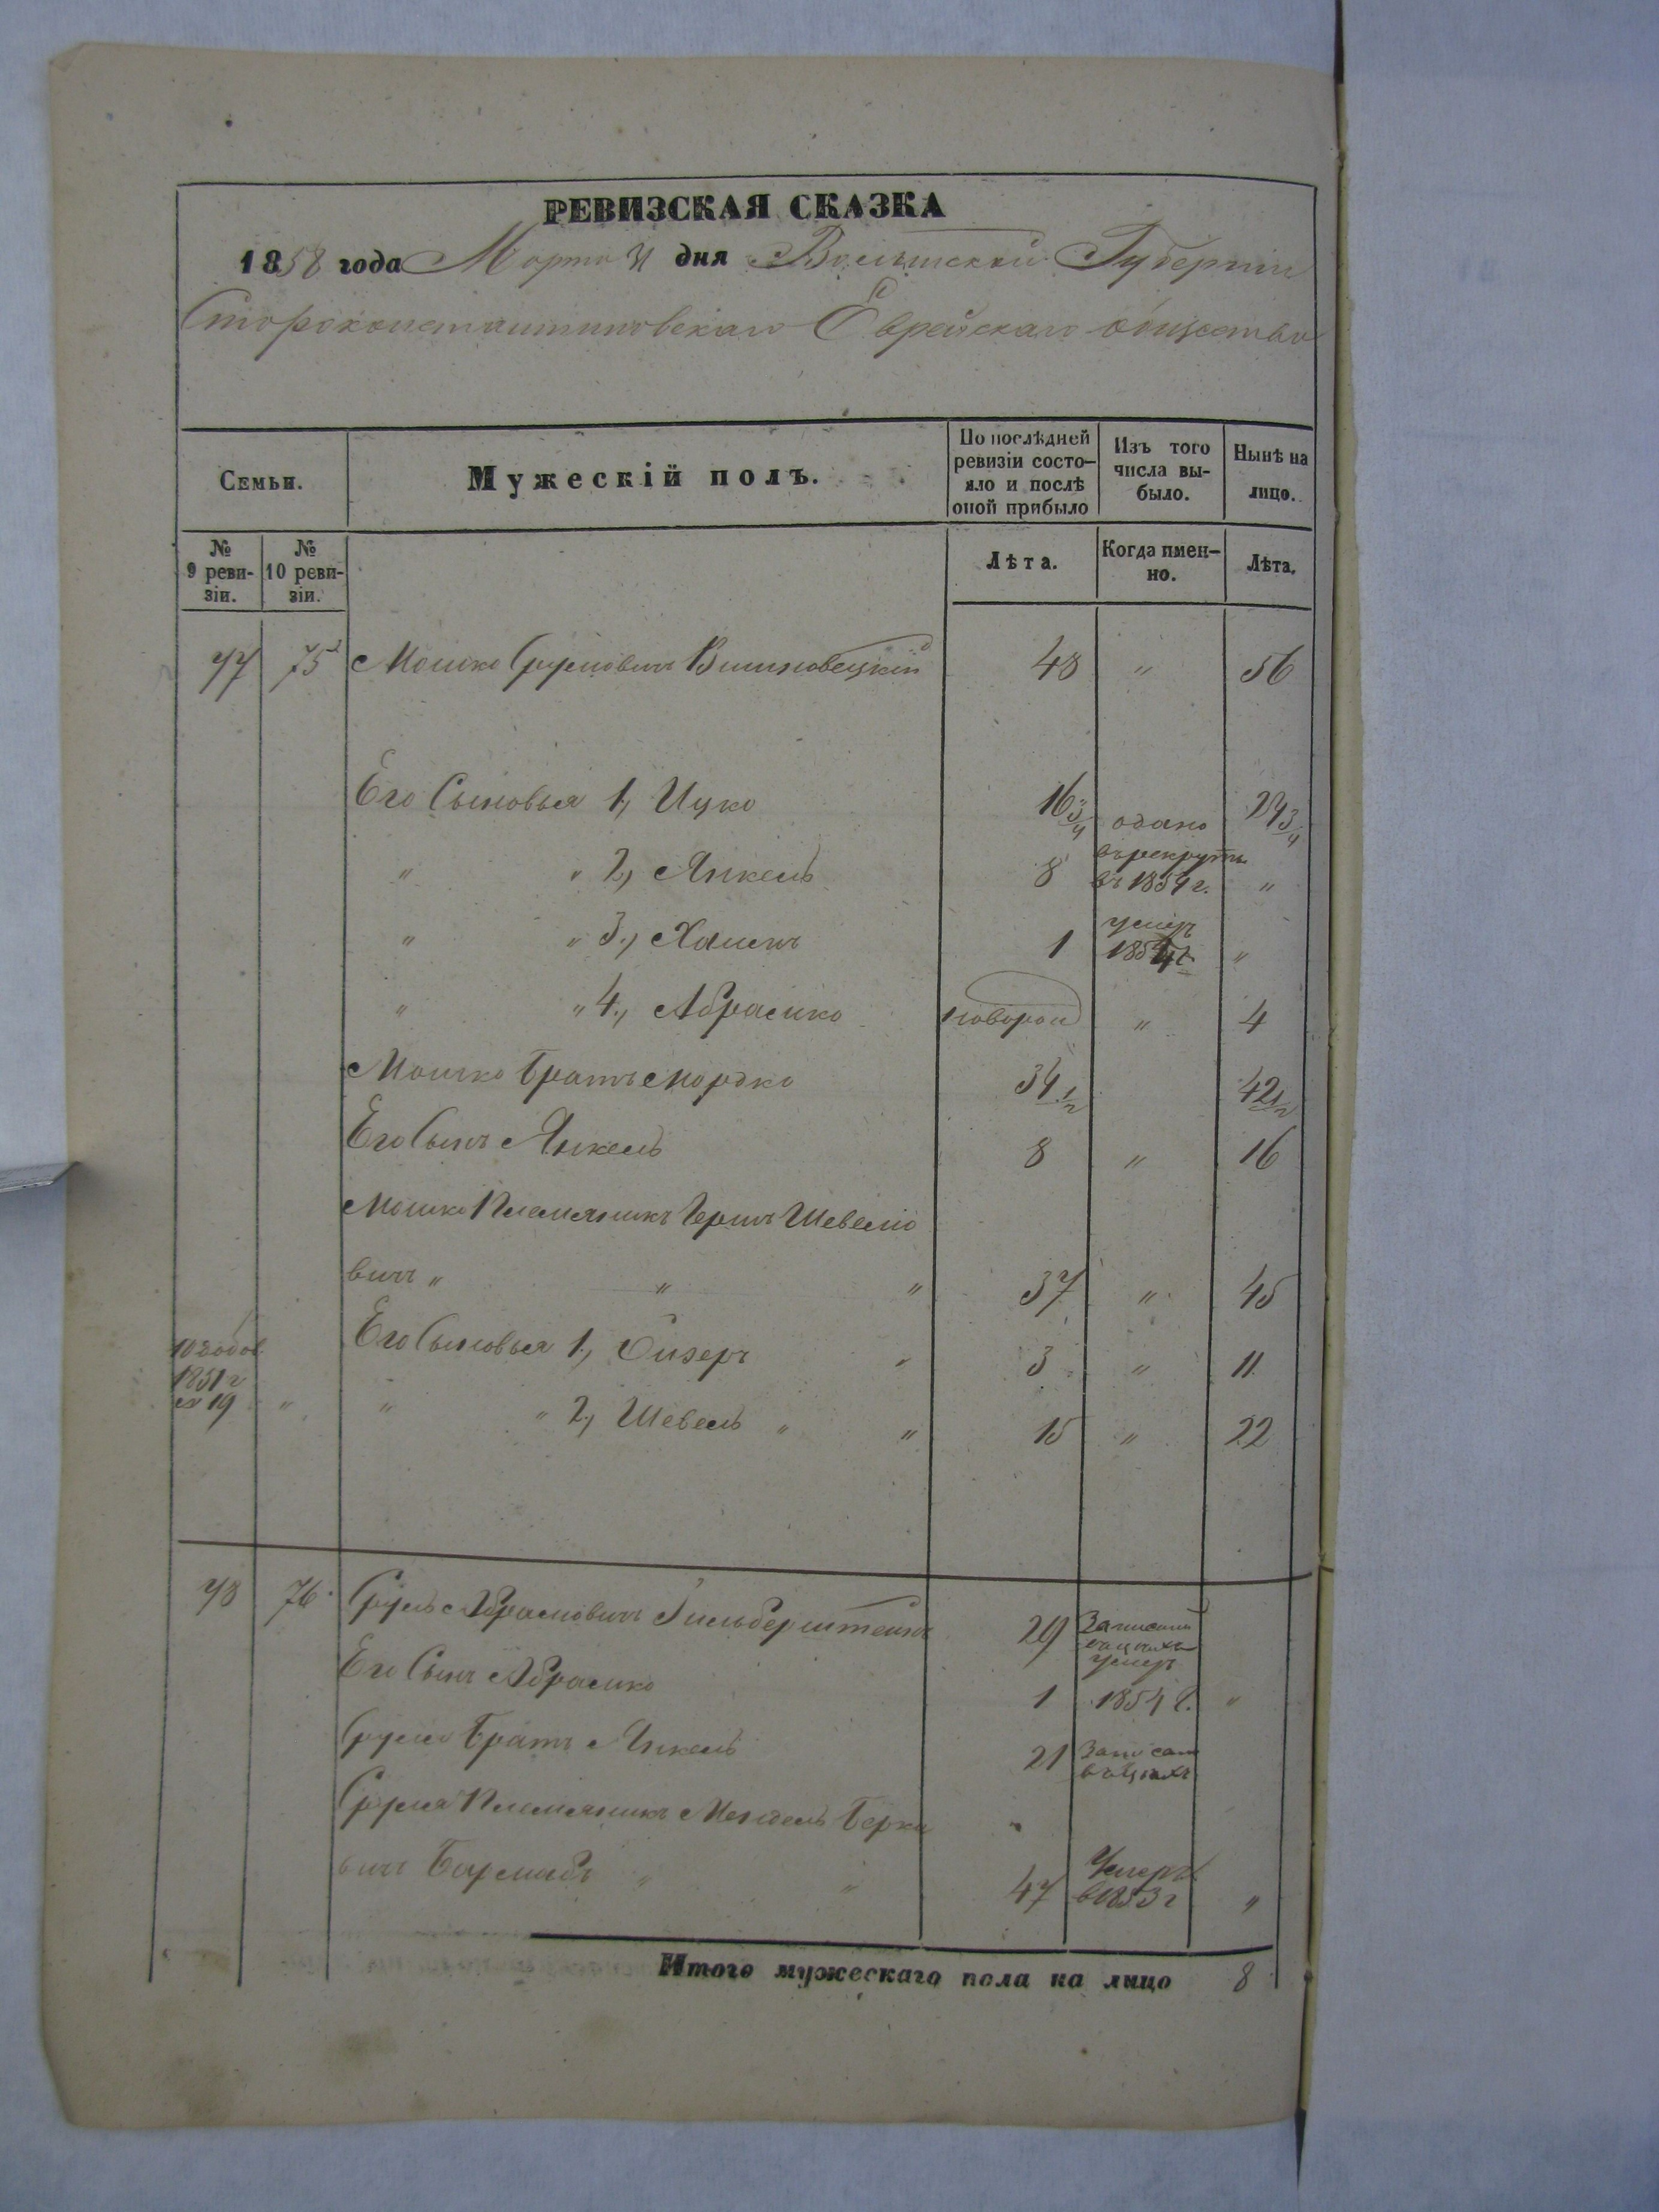 РЕВИЗСКАЯ СКАЗКА
1858 года Марта 31 дня Волынской Губерніи
Староконстантиновскаго Еврейскаго общества
Семьи.
Мужескій полъ.
По послѣдней ревизіи состо-
яло и послѣ
оной прибыло
Изъ того
числа вы-
было.
Нынѣ на
лицо.
№
9 реви-
зіи.
№
10 реви-
зіи.
Лѣта.
Когда имен-
но.
Лѣта.
77 75 Мошко Срулевичъ Вишновецкій 48 " 56
Его Сыновья 1, Ицко 16 3/4 24 3/4
" " 2, Янкель 8 одано въ рекруты въ 1854 г. "
" " 3, Хаимъ 1 умеръ 1854 г "
" " 4, Абрамко новорож " 4
Мошко братъ Мордко 34 1/2 42 1/2
Его Сынъ Янкель 8 " 16
Мошко Племяникъ Гершъ Шевелiо
вичъ " " " 37 " 45
Его Сыновья 1, 3 " 11
1851 г
19 " " " 2, Шевель " " 15 " 22
78 76 Сруль Абрамовичъ Зильберштейнъ 29 Записанъ
Его Сынъ Абрамко 1 умеръ 1854 г. "
Сруля братъ Янкель 21 Записанъ
Сруля Племяникъ Мендель Берко
вичъ " " 47 Умеръ в 1853 г "
Итого мужескаго пола на лицо 8